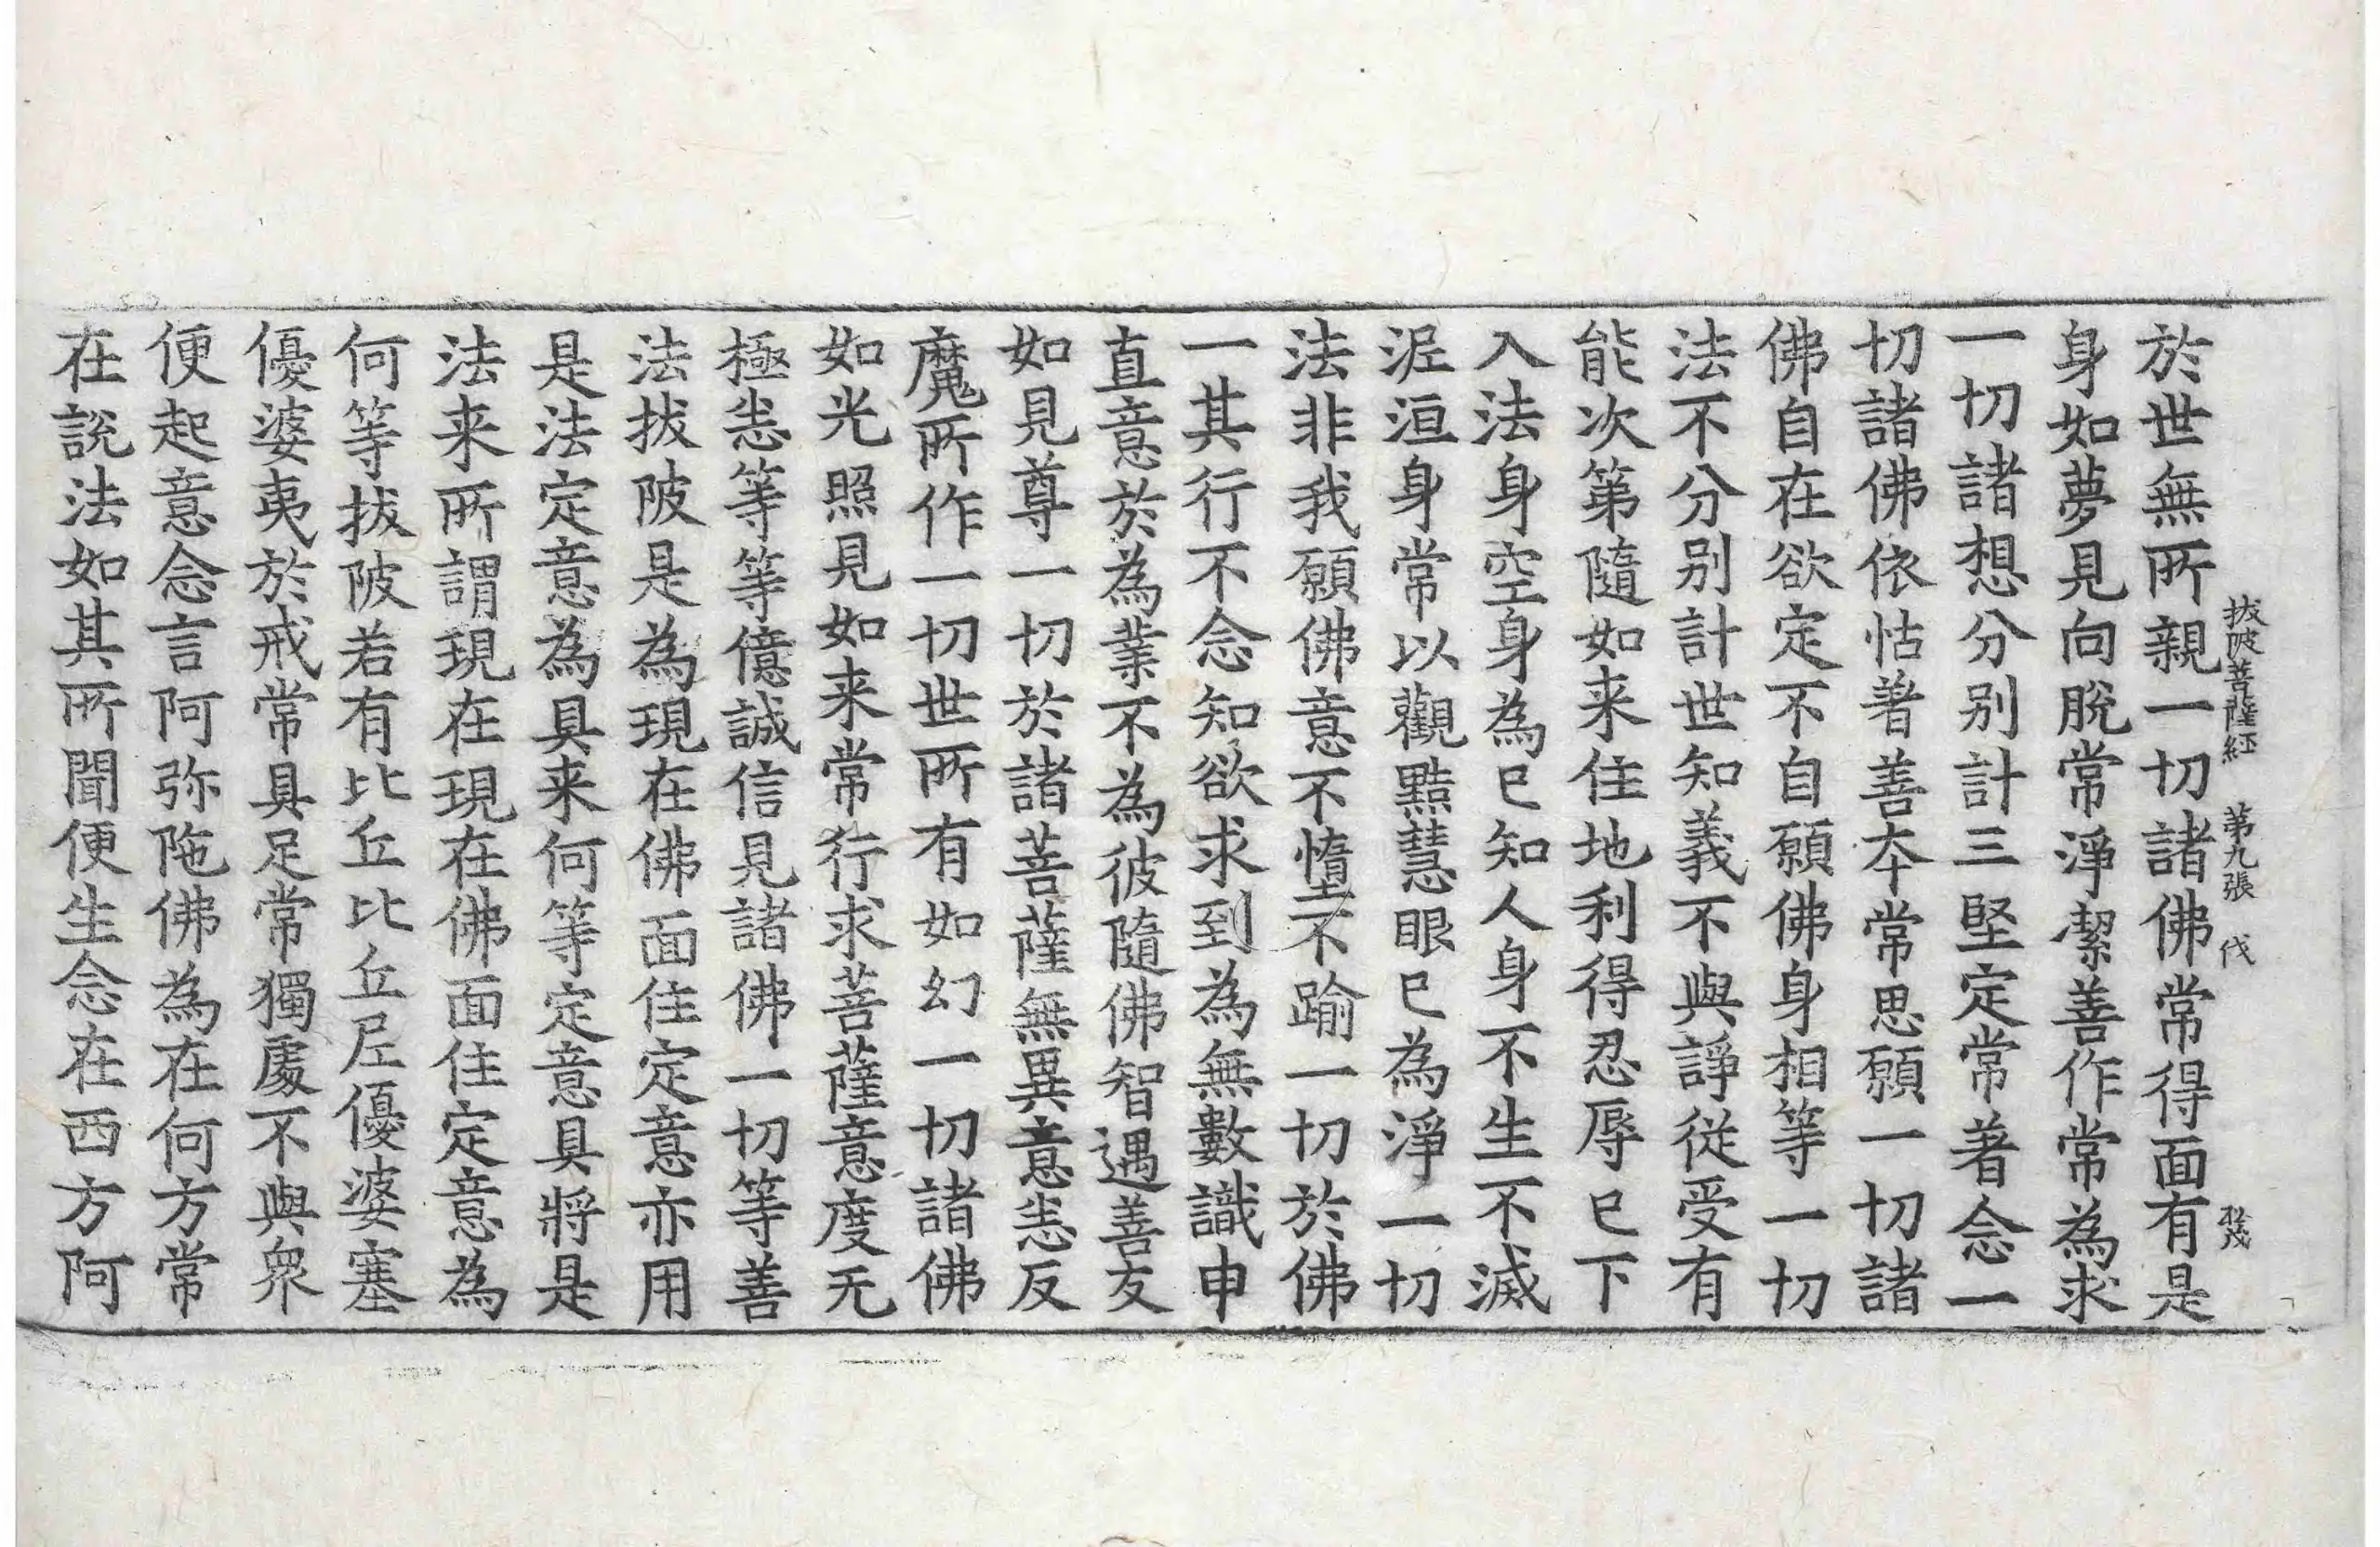 拔陂菩薩經 第九張 伐
於世無所親一切諸佛常得面有是
身如夢見向脫常淨潔善作常為求
一切諸想分别計三堅定常著念一
切諸佛依怙著善本常思願一切諸
佛自在欲定不自願佛身相等一切
法不分别計世知義不與諍從受有
能次第隨如来住地利得忍辱已下
入法身空身為已知人身不生不滅
泥洹身常以觀黠慧眼已為淨一切
法非我願佛意不墯不踰一切於佛
一其行不念知欲求到為無數識申
直意於為業不為彼隨佛智遇善友
如見尊一切於諸菩薩無異意恙反
魔所作一切世所有如幻一切諸佛
如光照見如来常行求菩薩意度无
極恙等等億誠信見諸佛一切等善
法拔陂是為現在佛面住定意亦用
是法定意為具来何等定意具將是
法来所謂現在現在佛面住定意為
何等拔陂若有比丘比丘尼優婆塞
優婆夷於戒常具足常獨處不與衆
便起意念言阿弥陁佛為在何方常
在說法如其所聞便生念在西方阿